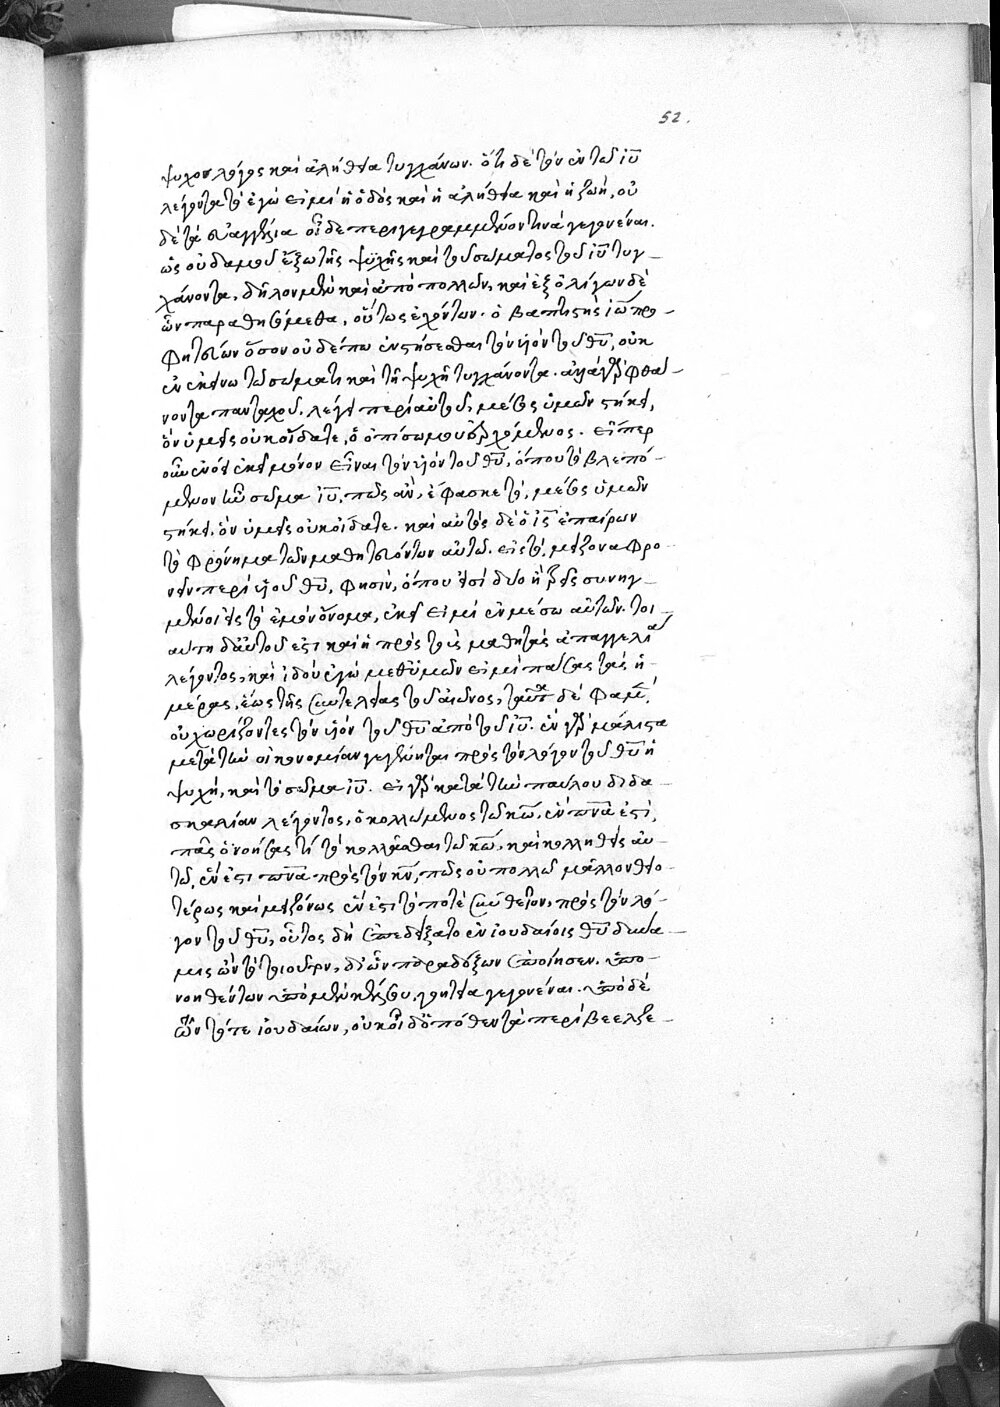 52.
ψυχον λόγος καὶ ἀλήθεια τυγχάνων. ὅτι δὲ τὸν ἐν τῷ ἰῦ
λέγοντα τὸ ἐγώ εἰμι ἡ ὁδὸς καὶ ἡ ἀλήθεια καὶ ἡ ζωή, οὐ
δὲ τὰ εὐαγγέλια οἶδε περιγεγραμμένον τινὰ γεγονέναι.
ὡς οὐδαμοῦ ἔξω τῆς ψυχῆς καὶ τοῦ σώματος τοῦ ἰῦ τυγ-
χάνοντα, δῆλον μὲν καὶ ἀπὸ πολλῶν, καὶ ἐξ ὀλίγων δὲ
ὧν παραθησόμεθα, οὕτως ἐχόντων. ὁ βαπτιστὴς ἰω προ-
φητεύων ὅσον οὐδέπω ἐνστήσεσθαι τὸν υἱὸν τοῦ θῦ, οὐκ
ἐν ἐκείνω τῷ σώματι καὶ τῇ ψυχῇ τυγχάνοντα. ἀλλὰ γὰρ φθά-
νοντα πανταχοῦ. λέγει περὶ αὐτοῦ, μέσος ὑμῶν στήκει,
ὃν ὑμεῖς οὐκ οἴδατε, ὁ ὀπίσω μου ἐρχόμενος. εἴπερ
οὖν ἐνόει ἐκεῖ μόνον εἶναι τὸν υἱὸν τοῦ θῦ, ὅπου τὸ βλεπό-
μενον ἦν σῶμα ἰῦ, πῶς ἂν, ἔφασκε τὸ, μέσος ὑμῶν
στήκει, ὃν ὑμεῖς οὐκ οἴδατε. καὶ αὐτὸς δὲ ὁ ἰς ἐπαίρων
τὸ φρόνημα τῶν μαθητευόντων αὐτῷ. εἰς τὸ, μείζονα φρο-
νεῖν περὶ υἱοῦ θῦ, φησίν, ὅπου εἰσὶ δύο ἢ τρεῖς συνηγ-
μένοι εἰς τὸ ἐμὸν ὄνομα, ἐκεῖ εἰμὶ ἐν μέσω αὐτῶν. τοι-
αύτη δ' αὐτοῦ ἐστι καὶ ἡ πρὸς τοὺς μαθητὰς ἀπαγγελία
λέγοντος, καὶ ἰδοὺ ἐγὼ μεθ' ὑμῶν εἰμὶ πάσας τὰς ἡ-
μέρας, ἕως τῆς συντελείας τοῦ αἰῶνος, ταῦτα δὲ φαμὲν,
οὐ χωρίζοντες τὸν υἱὸν τοῦ θῦ ἀπὸ τοῦ ἰῦ. ἓν γὰρ μάλιστα
μετὰ τὴν οἰκονομίαν γεγένηται πρὸς τὸν λόγον τοῦ θῦ ἡ
ψυχὴ, καὶ τὸ σῶμα ἰῦ. εἰ γὰρ κατὰ τὴν παύλου διδα-
σκαλίαν λέγοντος, ὁ κολλώμενος τῷ κω, ἓν πνα ἐστὶ,
πᾶς ὁ νοήσας τί τὸ κολλᾶσθαι τῷ κω, καὶ κολληθεὶς αὐ-
τῷ, ἕν ἐστι πνα πρὸς τὸν κν, πῶς οὐ πολλῷ μᾶλλον θειο-
τέρως καὶ μειζόνως ἕν ἐστι τὸ ποτὲ σύνθετον, πρὸς τὸν λό-
γον τοῦ θῦ, οὗτος δὴ ἐπεδείξατο ἐν ἰουδαίοις θῦ δύνα-
μις ὢν τὸ τοιοῦτον, δι' ὧν παραδόξων ἐποίησεν. ὑπο-
νοηθέντων ὑπὸ μὲν κέλσου, γοητεία γεγονέναι. ὑπὸ δὲ
τῶν τότε ἰουδαίων, οὐκ οἶδ' ὁπόθεν τὰ περὶ βεελζε-